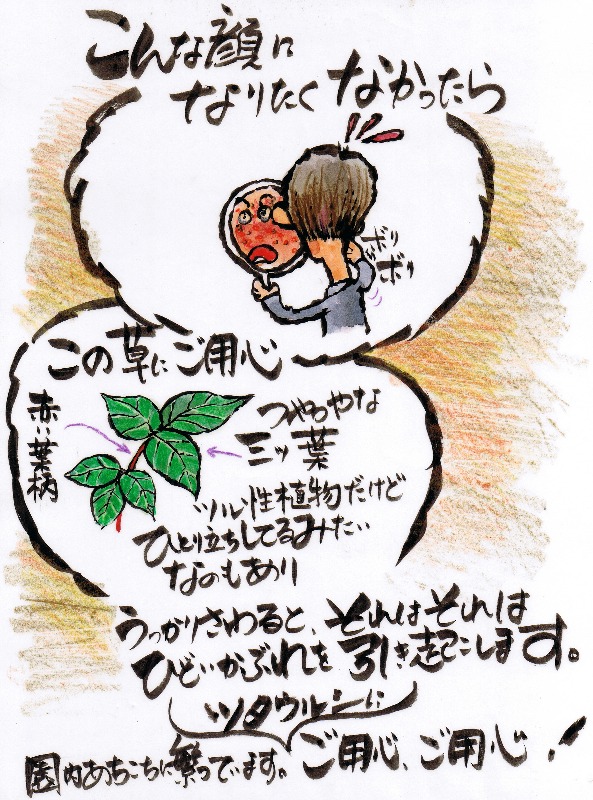 こんな顔に
なりたくなかったら
ボリ
ボリ
この草にご用心
赤い葉柄
つやつやな
三ッ葉
ツル性植物だけど
ひとり立ちしてるみたい
なのもあり
うっかりさわると、それはそれは
ひどいかぶれを引き起こします。
ツタウルシに
園内あちこちに繁ってます。ご用心、ご用心!